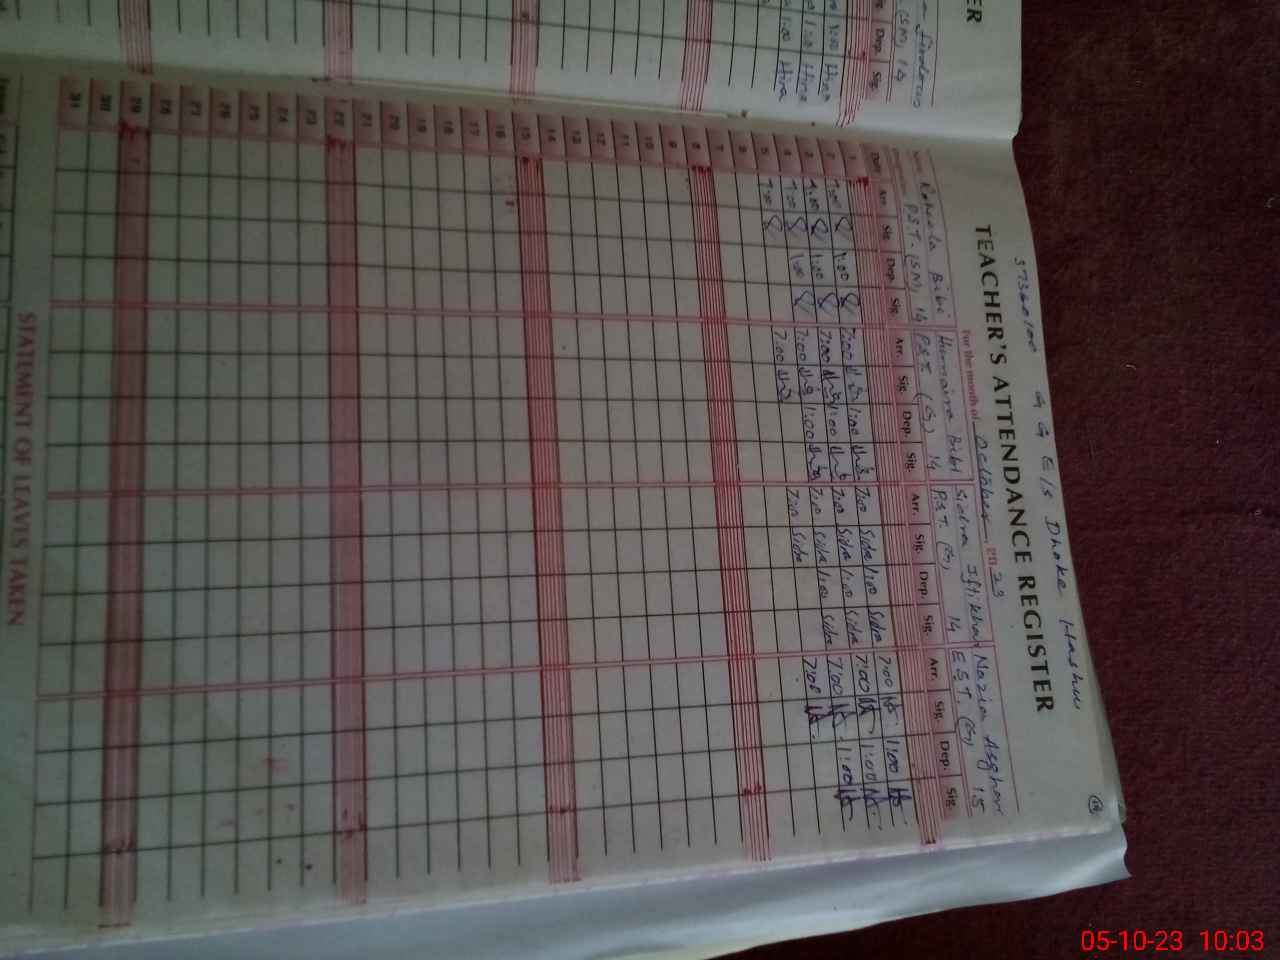 37360100 G G E/S Dhoke Hashu
TEACHER'S ATTENDANCE REGISTER
For the month of October, 2023
Raheela Bibi Humaira Bibi Sidra Iftikhar Nazia Asghar
PST. (SM) 14 PST. (G) 14 PST. (G) 14 E.S.T. (G) 15
Date Arr. Sig. Dep. Sig. Arr. Sig. Dep. Sig. Arr. Sig. Dep. Sig. Arr. Sig. Dep. Sig.
1
2 7:00 1:00 7:00 1:00 7:00 Sidra 1:00 Sidra 7:00 1:00
3 7:00 1:00 7:00 1:00 7:00 Sidra 1:00 Sidra 7:00 1:00
4 7:00 1:00 7:00 1:00 7:00 Sidra 1:00 Sidra 7:00 1:00
5 7:00 7:00 7:00 Sidra 7:00
6
7
8
9
10
11
12
13
14
15
16
17
18
19
20
21
22
23
24
25
26
27
28
29
30
31
STATEMENT OF LEAVES TAKEN
ER
Firdous
(SM) 14
Dep. Sig.
1:00 Hira
1:00 Hira
1:00 Hira
05-10-23 10:03